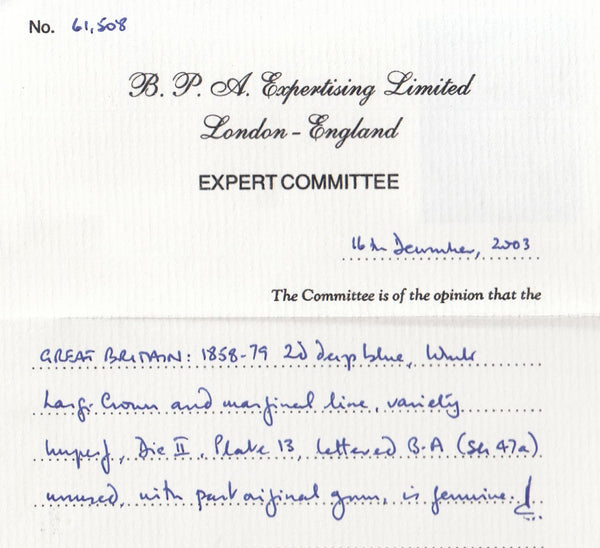 No. 61,508
B. P. A. Expertising Limited
London - England
EXPERT COMMITTEE
16th December, 2003
The Committee is of the opinion that the
GREAT BRITAIN: 1858-79 2d deep blue, Wmk
Large Crown and marginal line, variety
Imperf, Die II, Plate 13, lettered B-A (SG 47a)
unused, with part original gum, is genuine.